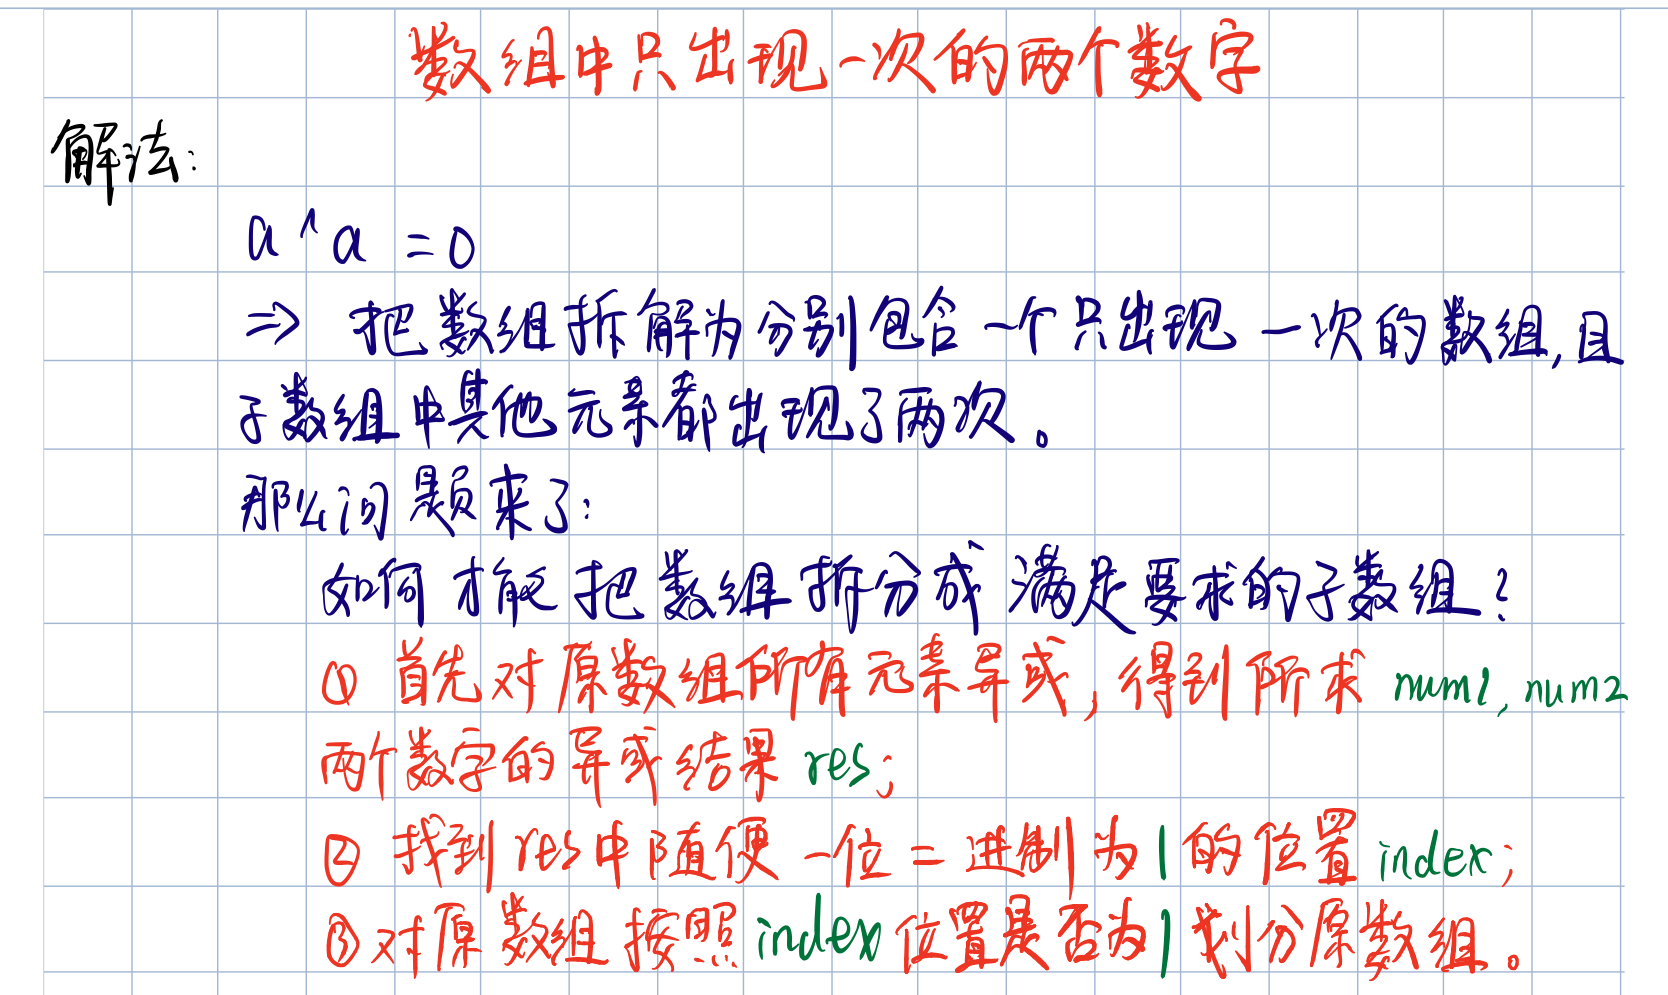 数组中只出现一次的两个数字
解法:
a^a=0
⇒ 把数组拆解为分别包含一个只出现一次的数组,且
子数组中其他元素都出现了两次。
那么问题来了:
如何才能把数组拆分成满足要求的子数组?
① 首先对原数组所有元素异或,得到所求 num1,num2
两个数字的异或结果 res;
② 找到res中随便一位二进制为1的位置index;
③ 对原数组按照index位置是否为1划分原数组。